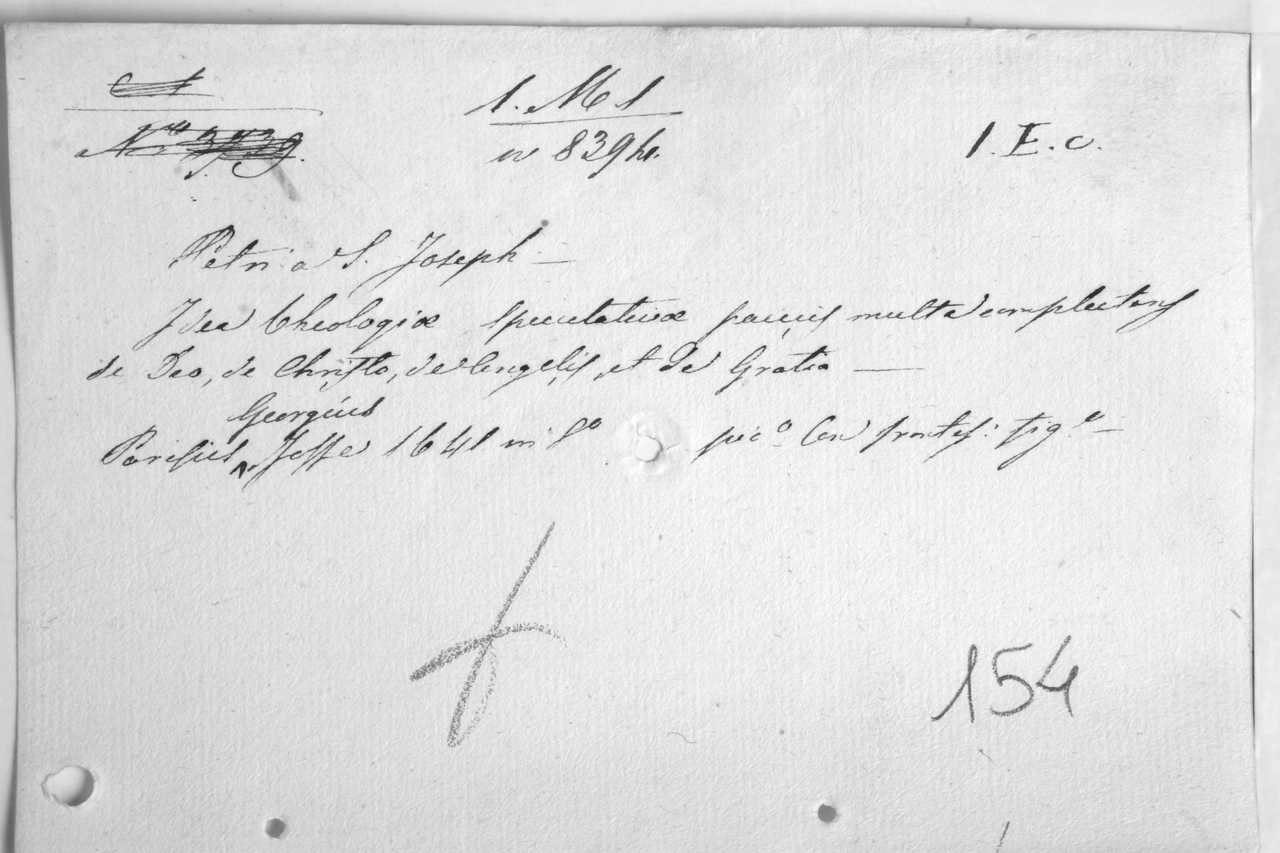 N.ro 3739.
1. M 1
839
1. E. c.
Petri a S. Joseph —
Idea Theologiæ speculativæ paucis multa complectens
de Deo, de Christo, de Angelis, et de Gratia —
Georgius
Parisiis Josse 1641 in 8o pic.o con frontesp: fig.o —
154